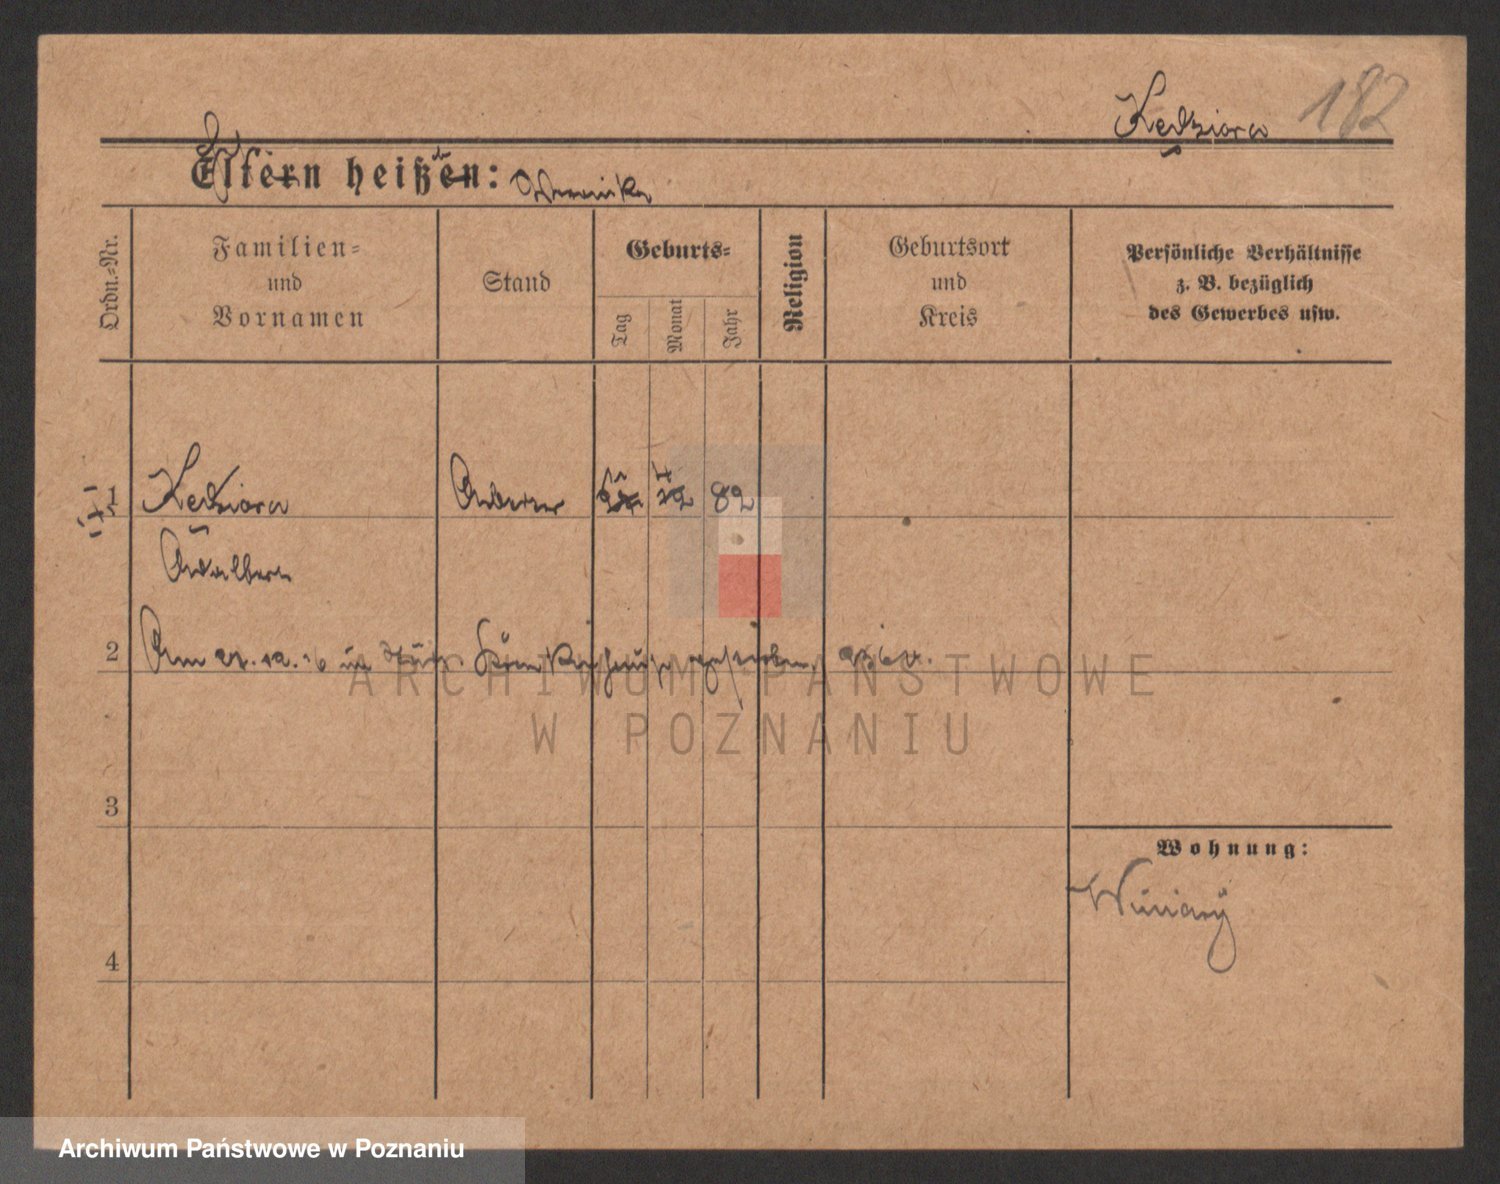 Kedziora 182
Eltern heißen:
Ordn.-Nr.
Familien-
und
Vornamen
Stand
Geburts-
Tag
Monat
Jahr
Religion
Geburtsort
und
Kreis
Persönliche Verhältnisse
z. B. bezüglich
des Gewerbes usw.
1 Kedziora 82
Adalbert
2 Am in gestorben,
3
4
Wohnung:
Winiary
ARCHIWUM PAŃSTWOWE
W POZNANIU
Archiwum Państwowe w Poznaniu